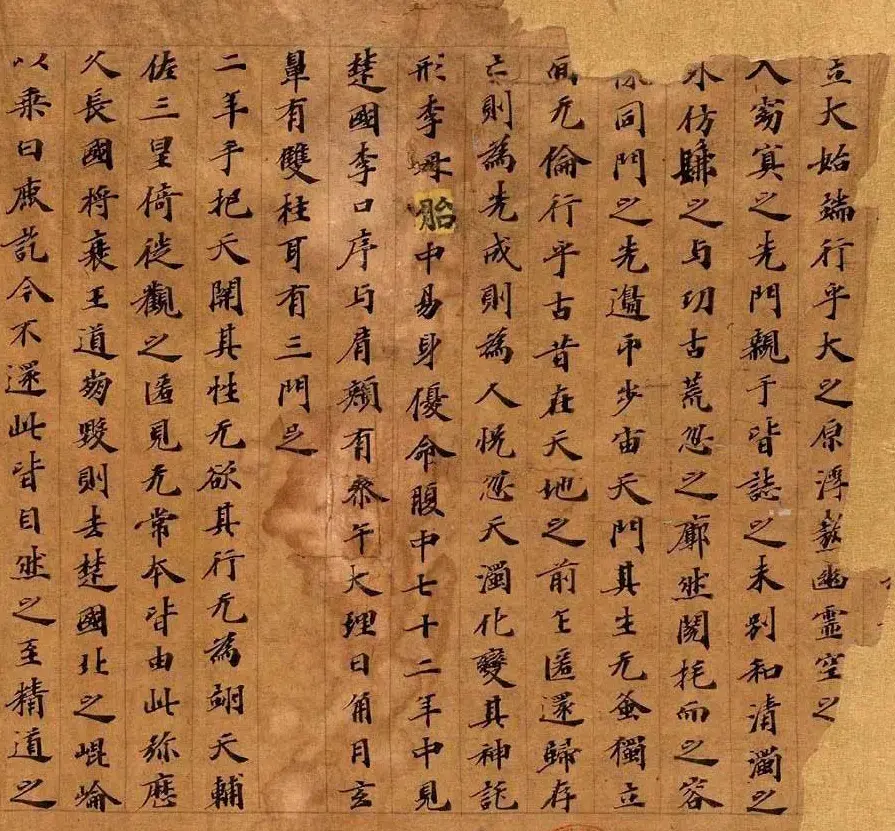 立大始端行乎大之原浮熬幽靈空之
入窈冥之先門親乎皆誌之未別和清濁之
仿之与功古荒忽之廓然而之容
同門之先邊匝步宙天門其生无蚤獨立
无倫行乎古昔在天地之前乍匿還歸存
亡則為先成則為人恍忽天濁化變其神託
形李母胎中易身優命腹中七十二年中見
楚國李口序与肩頰有參午大理日角月玄
鼻有雙柱耳有三門足
二午手把天關其性无欲其行无為翊天輔
佐三皇倚徙觀之匿見无常本皆由此弥歷
久長國將衰王道崩毀則去楚國北之崐崘
以乘白鹿訖今不還此皆自然之至精道之